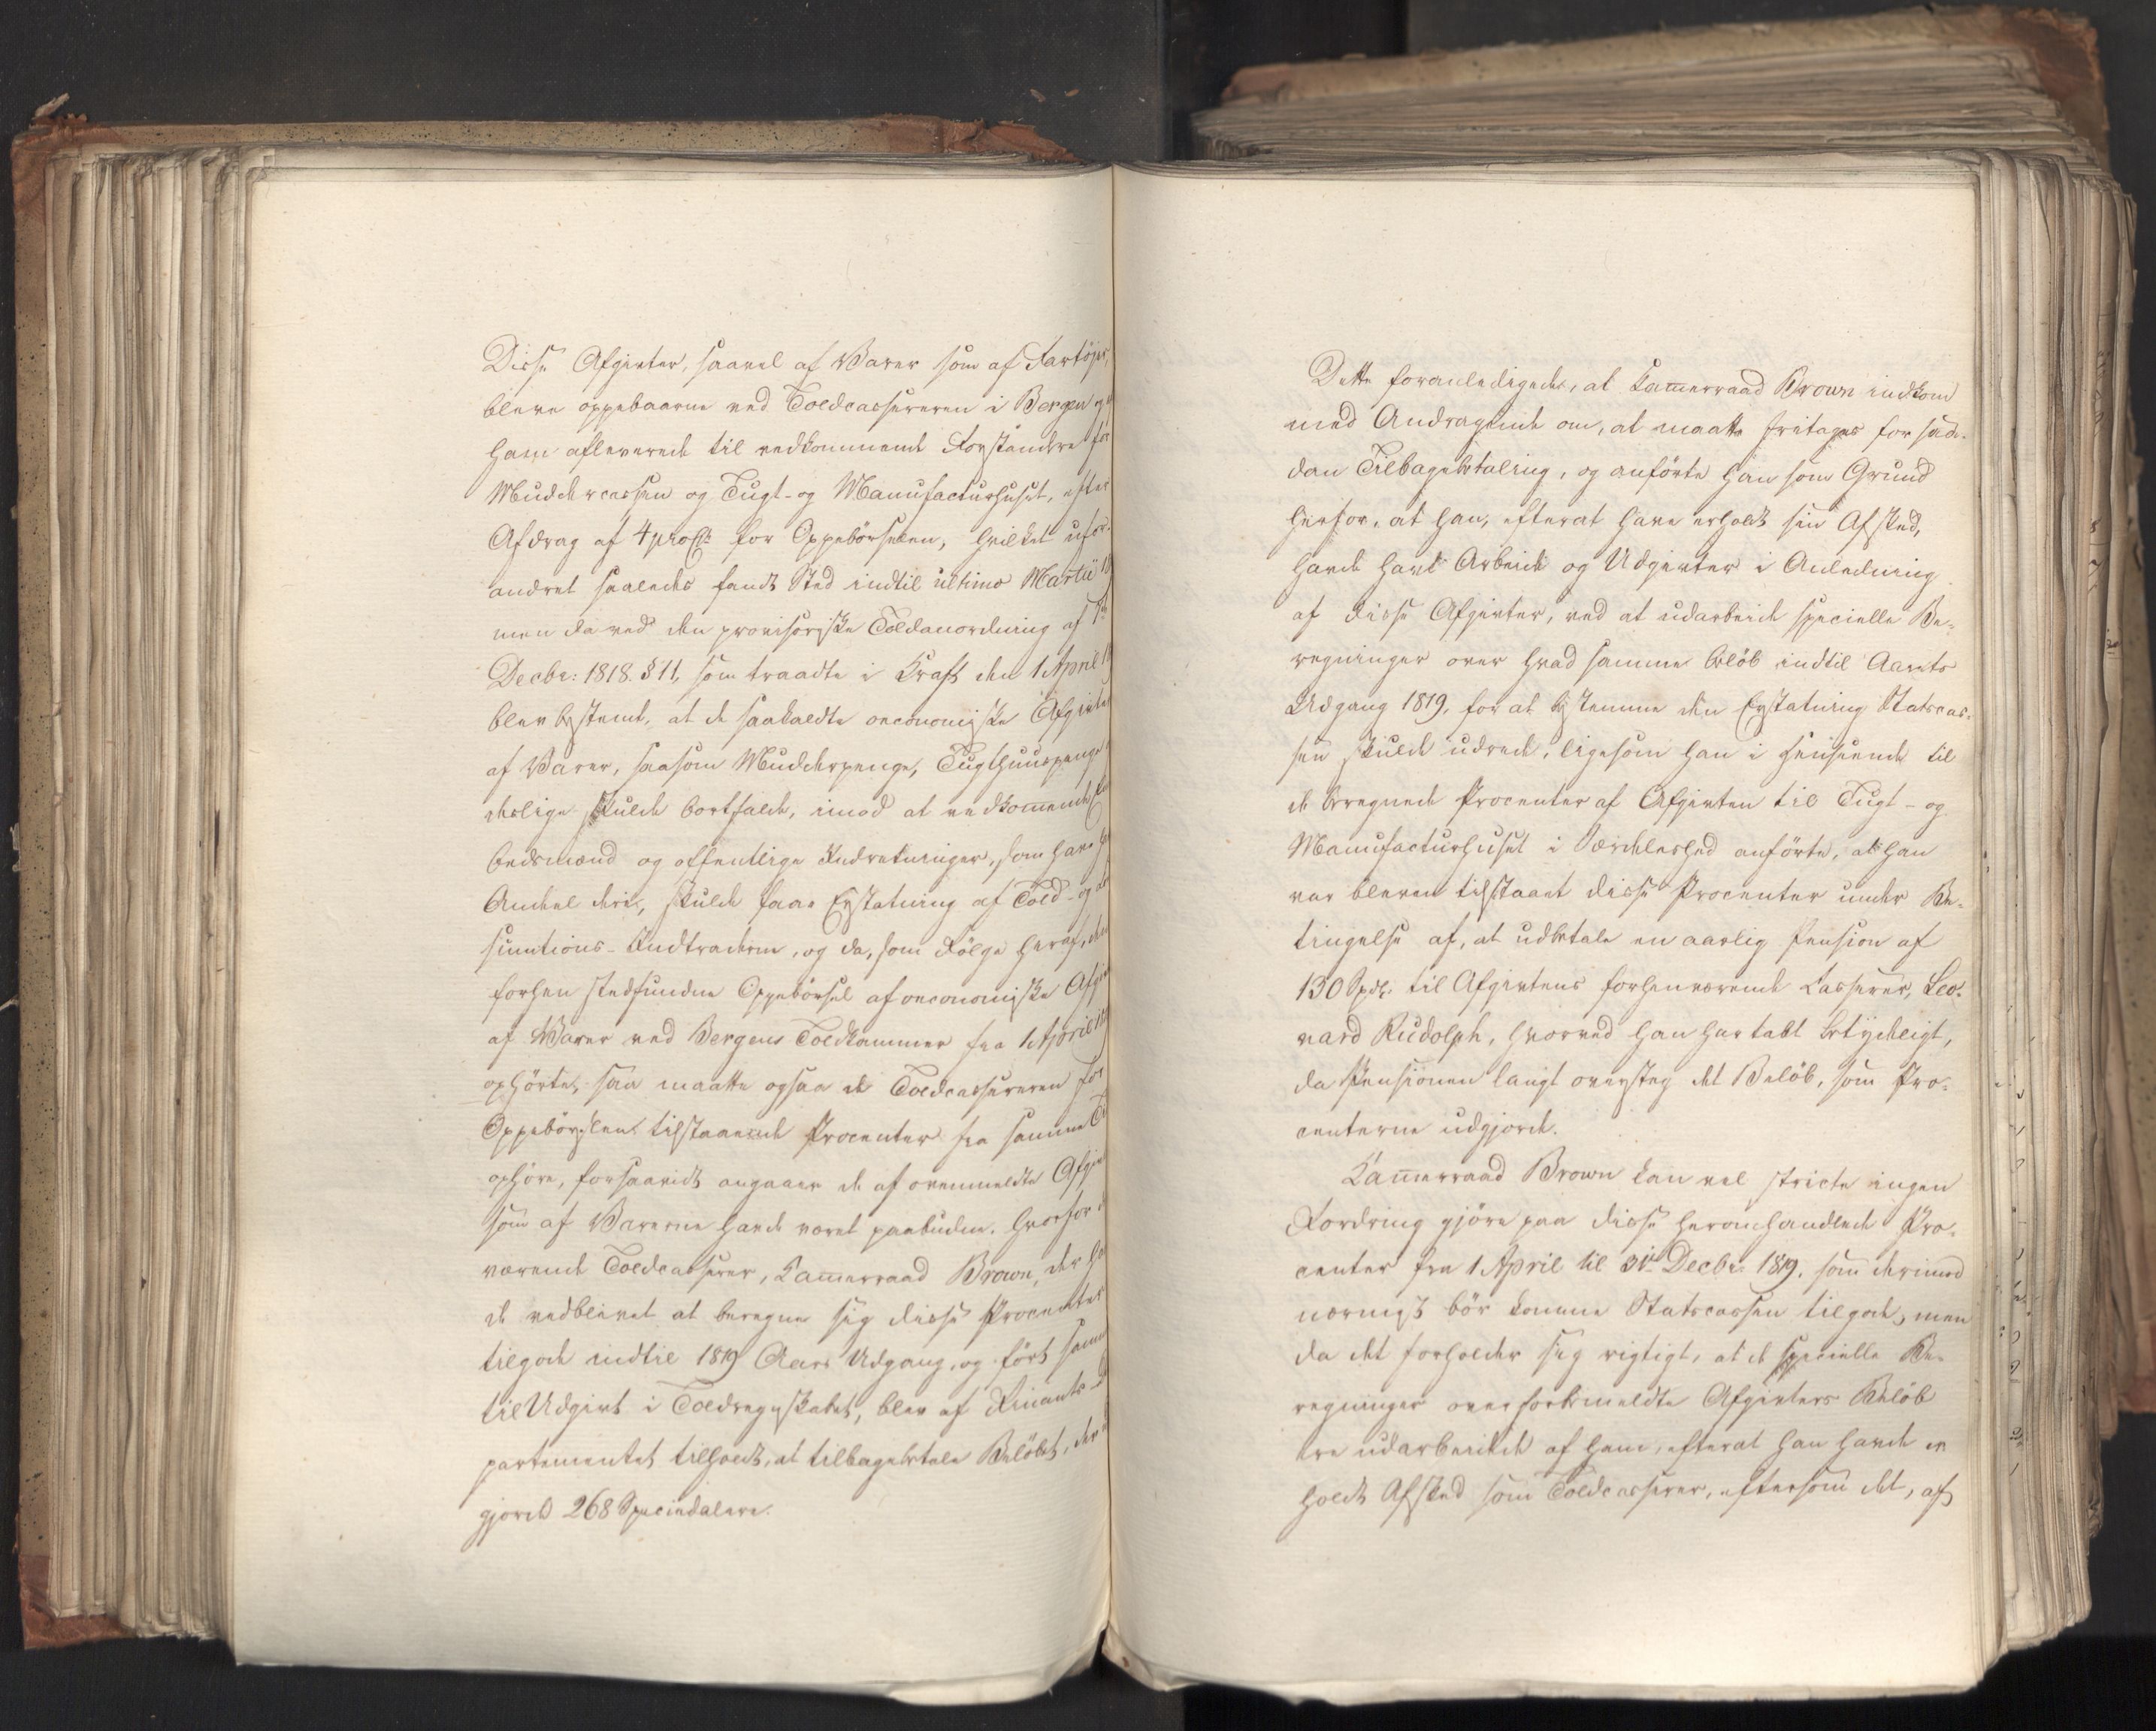 Disse Afgivter, saavel af Varer som af Fartöjer,
bleve oppebaarne ved Toldcassereren i Bergen og
ham afleverede til vedkommende Forstandere for
Muddercassen og Tugt- og Manufacturhuset, efter
Afdrag af 4 proCt: for Oppebörselen, hvilket ufor-
andret saaledes fandt Sted indtil ultimo Martii
men da ved den provisoriske Toldanordning af
Decbr: 1818. § 11, som traadte i Kraft den 1 April
blev bestemt, at de saakaldte oeconomiske Afgivter
af Varer, saasom Mudderpenge, Tugthuuspenge
deslige skulde bortfalde, imod at vedkommende
bedsmænd og offentlige Indretninger, som have
Andeel deri, skulde faae Erstatning af Told- og
sumtions-Indtraderne, og da, som Fölge heraf, den
forhen stedfundne Oppebörsel af oeconomiske
af Varer ved Bergens Toldkammer fra 1 April
ophörte, saa maatte ogsaa de Toldcassereren for
Oppebörslen tilstaaede Procenter fra samme
ophöre, forsaavidt angaaer de af ovenmeldte
som af Varerne havde været paabuden. Hvorfor
værende Toldcasserer, Kammerraad Brown, der
de vedblevet at beregne sig disse Procenter
tilgode indtil 1819 Aars Udgang, og fört samme
til Udgivt i Toldregnskabet, blev af Finants-
partementet tilholdt, at tilbagebetale Belöbet, der
gjorde 268 Speciedalere.
Dette foranledigede, at Kammerraad Brown indkom
med Andragende om, at maatte fritages for saa-
dan Tilbagebetaling, og anförte han som Grund
herfor, at han, efterat have erholdt sin Afsked,
havde havt Arbeide og Udgivter i Anledning
af disse Afgivter, ved at udarbeide specielle Be-
regninger over hvad samme belöb indtil Aarets
Udgang 1819, for at bestemme den Erstatning Statscas-
sen skulde udrede, ligesom han i Henseende til
de beregnede Procenter af Afgivten til Tugt- og
Manufacturhuset i Særdeleshed anförte, at han
var bleven tilstaaet disse Procenter under Be-
tingelse af, at udbetale en aarlig Pension af
130 Spdr. til Afgivtens forhenværende Casserer, Leo-
nard Rudolph, hvorved han har tabt betydeligt,
da Pensionen langt oversteg det Belöb, som Pro-
centerne udgjorde.
Kammerraad Brown kan vel stricte ingen
Fordring gjöre paa disse heromhandlede Pro-
center fra 1 April til 31te Decbr. 1819. som derimod
nærmest bör komme Statscassen tilgode, men
da det forholder sig rigtigt, at de specielle Be-
regninger over forbemeldte Afgivters Belöb
ere udarbeidede af ham, efterat han havde er
holdt Afsked som Toldcasserer, eftersom det, af